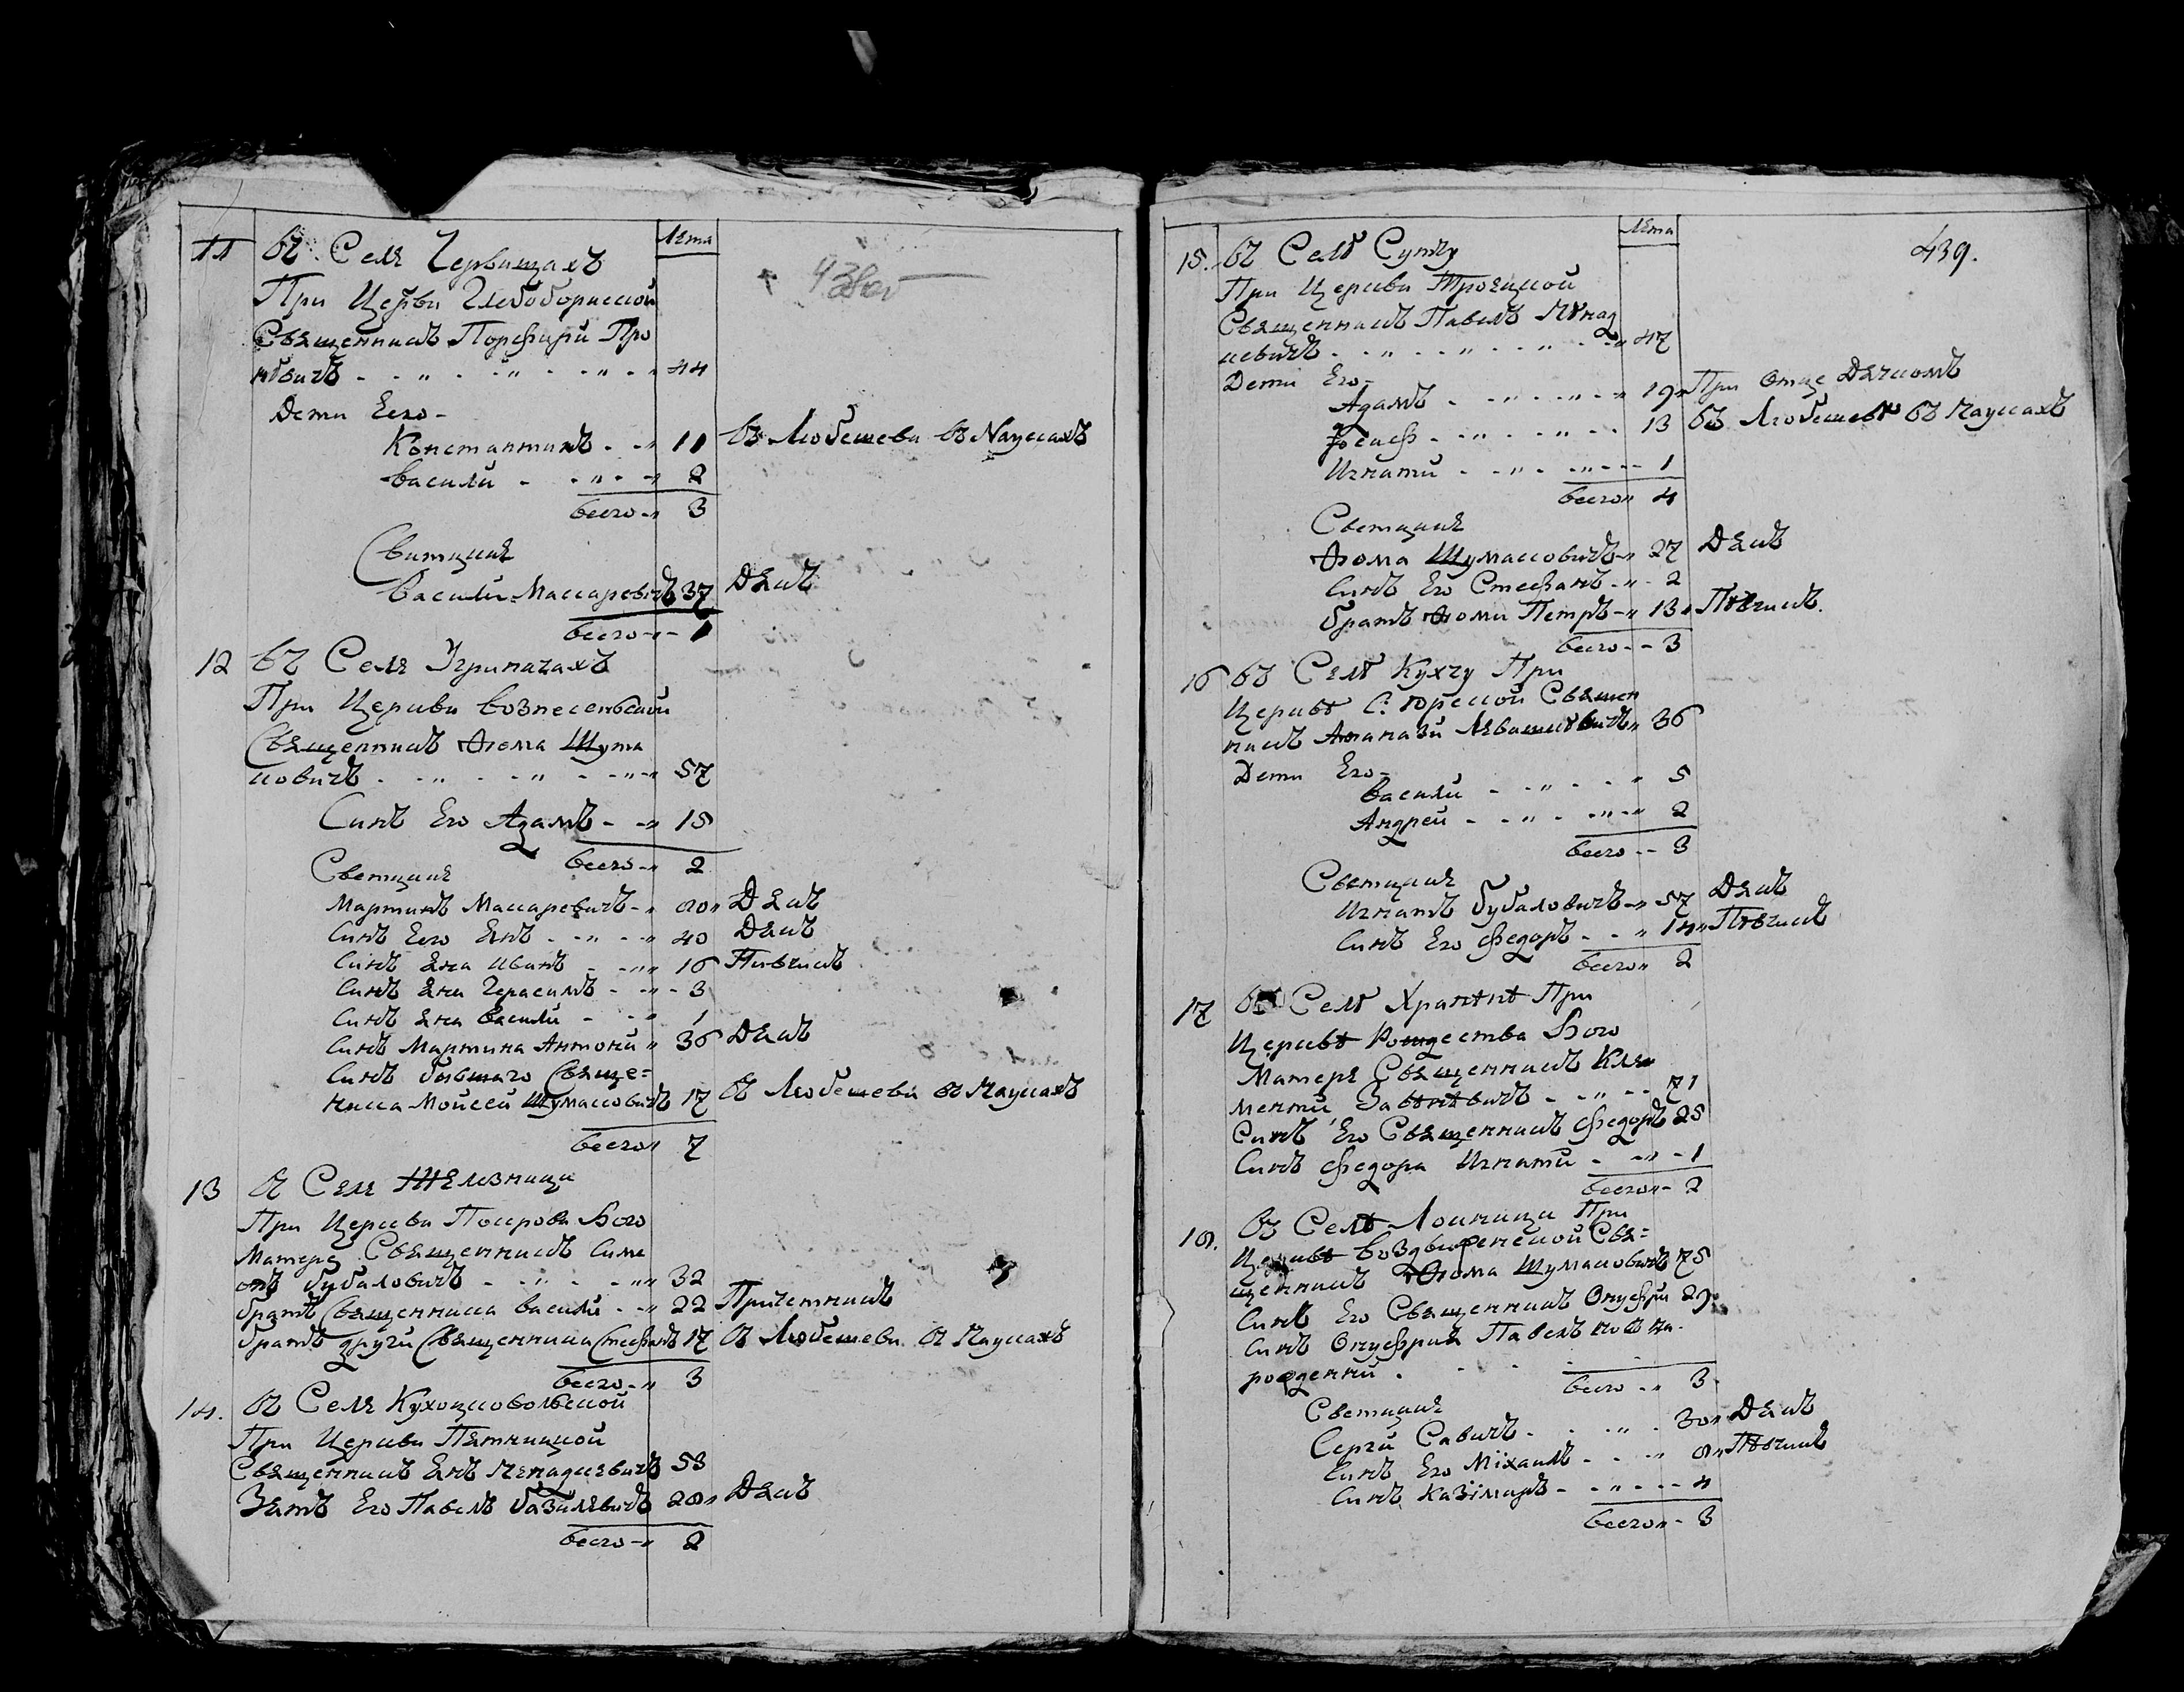 Лѣта
11 Въ Селѣ Червищахъ
При Церкви Глебоборисской
Священникъ Порфири Про
ковичъ 44
Дети Его
Константинъ 11 Въ Любешеви въ Наукахъ
Васили 2
Всего 3
Свитцкия
Васили Макаревичъ 37 Дякъ
Всего 1
12 Въ Селѣ Угриничахъ
При Церкви Вознесенской
Священникъ Фома Шума
ковичъ 57
Синъ Его Адамъ 15
Всего 2
Светцкия
Мартинъ Макаревичъ 80 Дякъ
Синъ Его Янъ 40 Дякъ
Синъ Яна Иванъ 16 Пивчикъ
Синъ Яна Герасимъ 3
Синъ Яна Васили 1
Синъ Мартина Антони 36 Дякъ
Синъ бывшаго Свяще=
ника Мойсей Шумаковичъ 17 Въ Любешеви въ Наукахъ
Всего 7
13 Въ Селѣ Железници
При Церкви Покрова Бого
Матере Священникъ Симе
онъ Бубаловичъ 32
братъ Священника Васили 22 Причетникъ
братъ други Священника Стефанъ 17 Въ Любешеви въ Наукахъ
Всего 3
14. Въ Селѣ Кухоцковольской
При Церкви Пятницкой
Священникъ Янъ Генадиевичъ 53
Зять Его Павелъ Базилевичъ 28 Дякъ
Всего 2
Лѣта
439.
15. Въ Селѣ Сутку
При Церкви Троецкой
Священникъ Павелъ Генад
иевичъ 47
Дети Его
Адамъ 19 При Отце Дячкомъ
Иосиф 13 Въ Любешевѣ въ Наукахъ
Игнати 1
Всего 4
Светцкия
Фома Шумаковичъ 27 Дякъ
Синъ Его Стефанъ 2
братъ Фоми Петръ 13 Пѣвчикъ.
Всего 3
16 Въ Селѣ Кухчу При
Церквѣ С. Юрской Священ
никъ Афанази 36
Дети Его
Васили 5
Андрей 2
Всего 3
Светцкия
Игнатъ Бубаловичъ 57 Дякъ
Синъ Его Федоръ 14 Пѣвчикъ
Всего 2
17 Въ Селѣ При
Церквѣ Рождества Бого
Матерѣ Священникъ Кли
менти 71
Синъ Его Священникъ Федоръ 25
Синъ Федора Игнати 1
Всего 2
18. Въ Селѣ Локници При
Церквѣ Воздвиженской Свя=
щенникъ Фома Шумаковичъ 75
Синъ Его Священникъ Онуфри 29
Синъ Онуфрия Павелъ ново на
рожденни
Всего 3
Светцкия
Серги Савичъ 30 Дякъ
Синъ Его Міхаилъ 8 Пѣвчикъ
Синъ Казімиръ 4
Всего 3